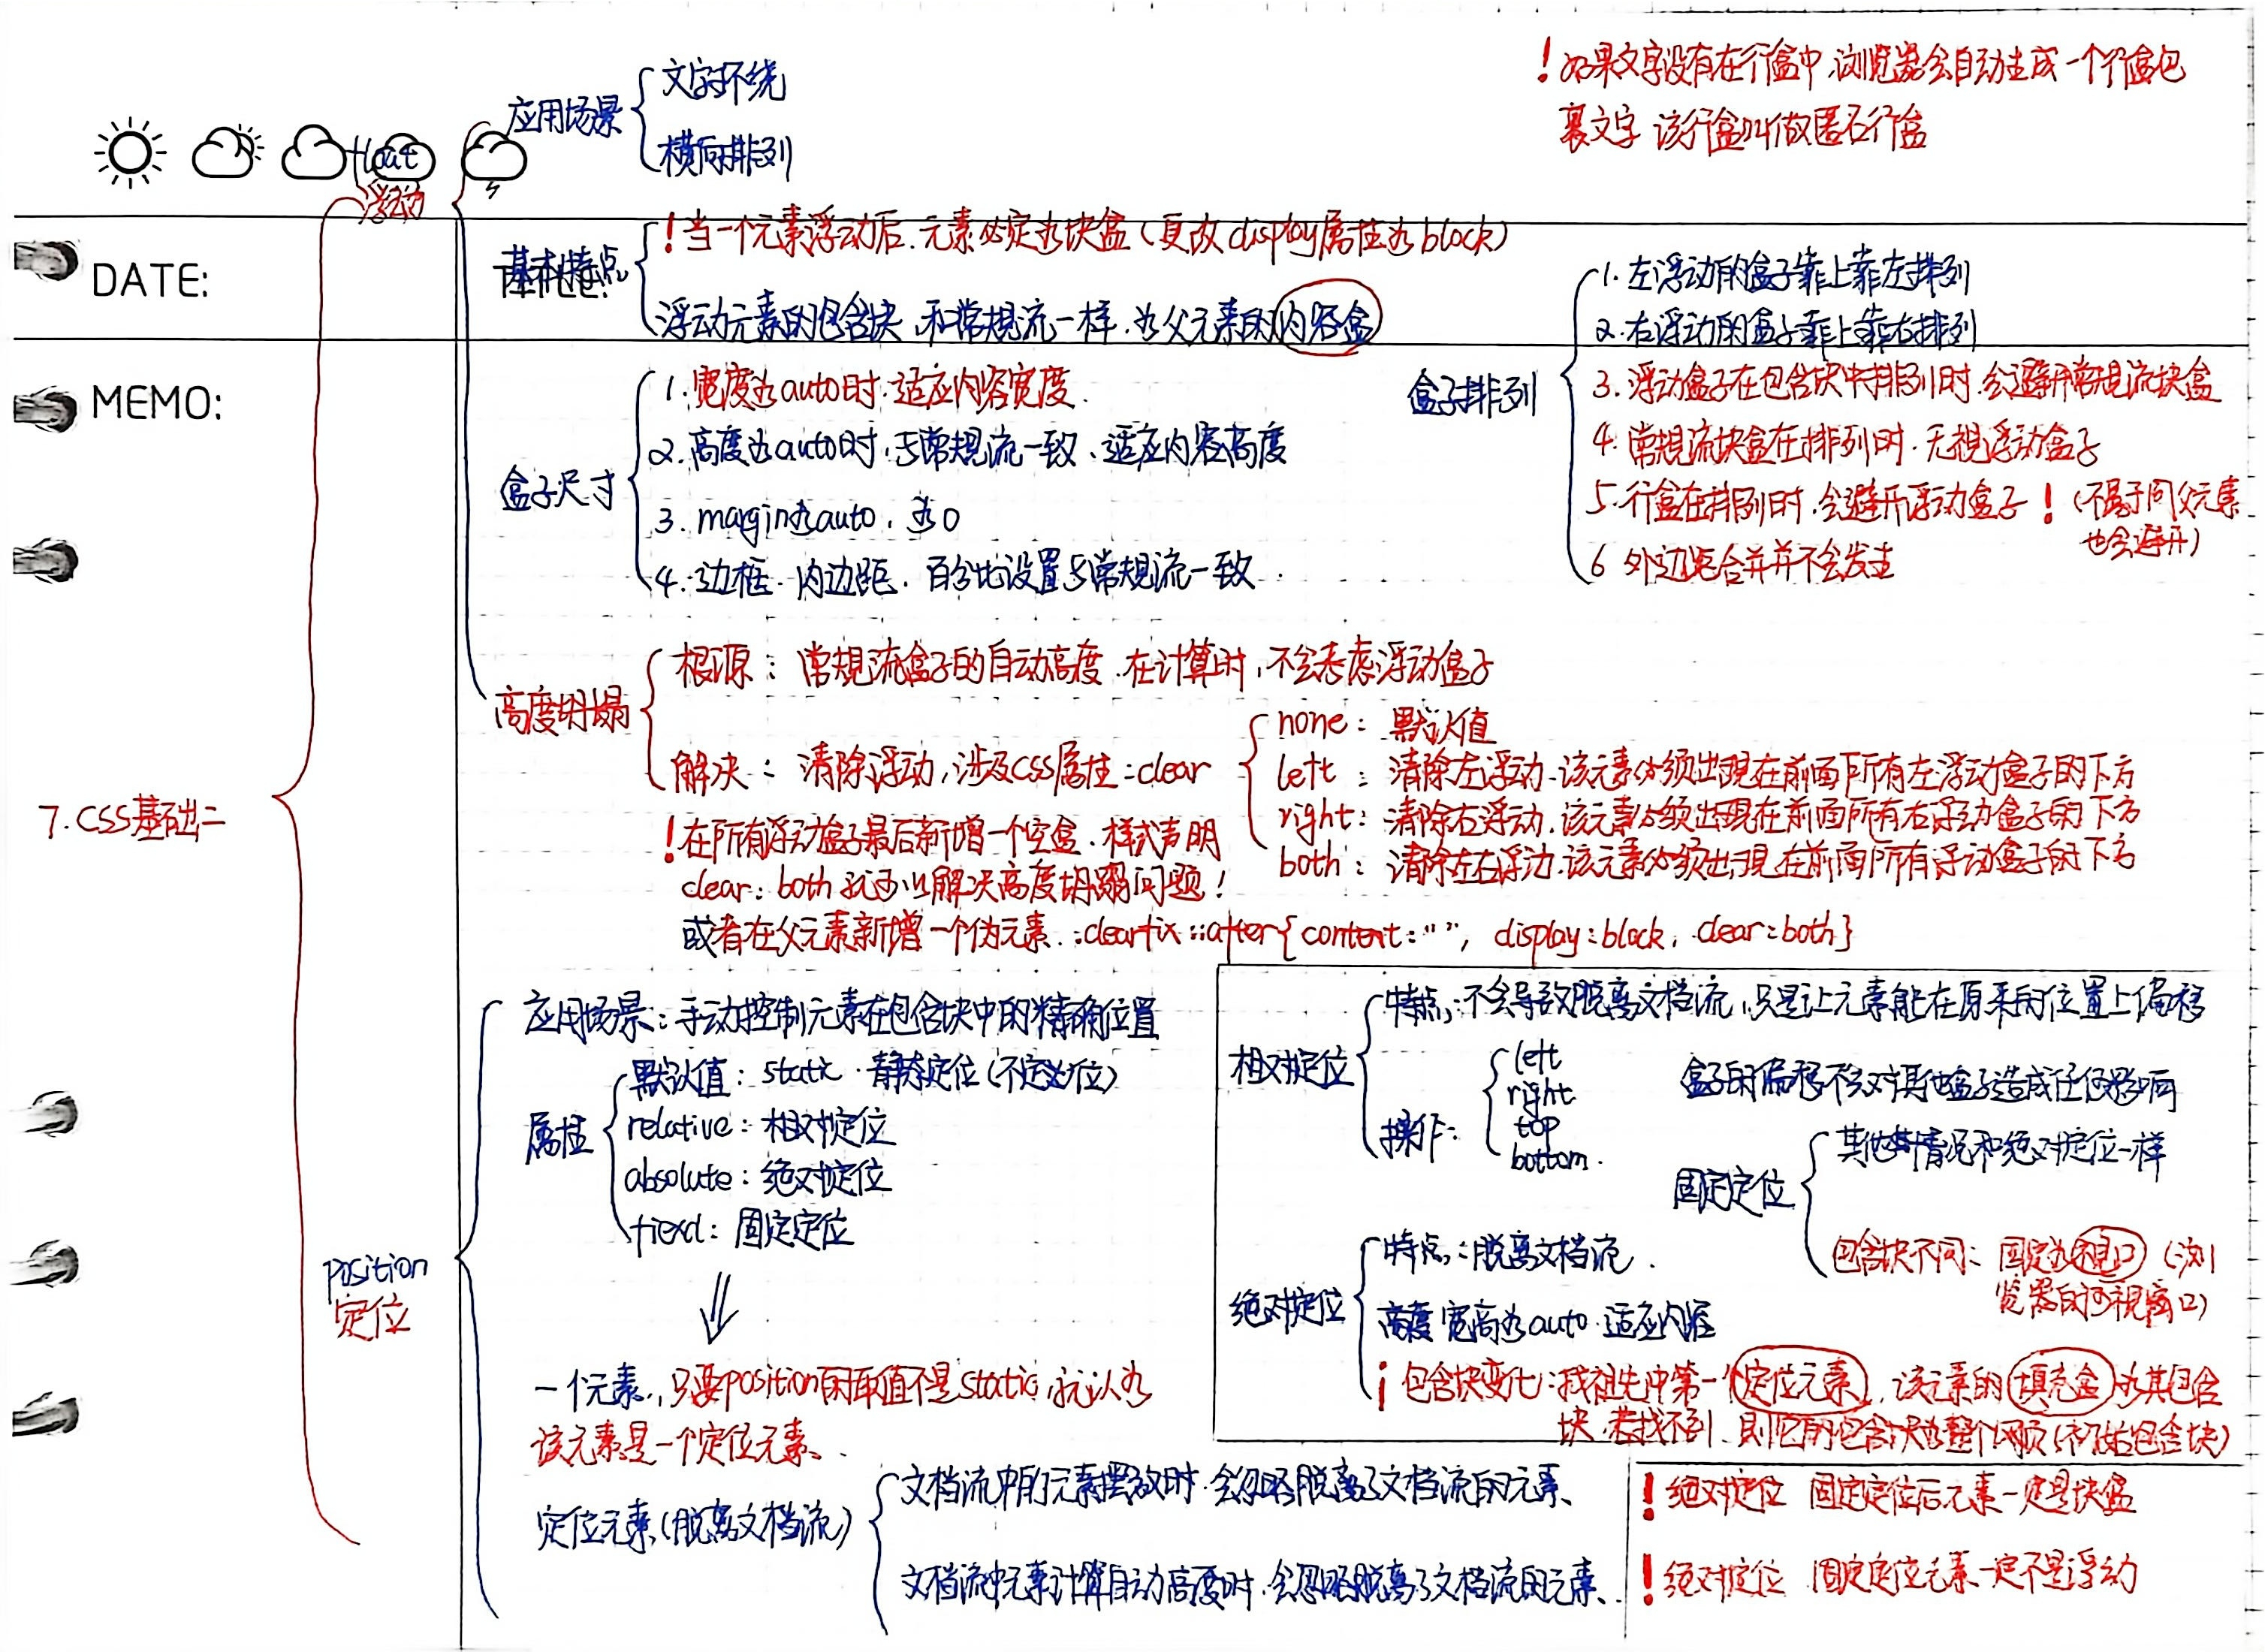 7.CSS基础二
float
浮动
应用场景
文字环绕
横向排列
!如果文字没有在行盒中,浏览器会自动生成一个行盒包
裹文字 该行盒叫做匿名行盒
DATE:
TITLE:
MEMO:
基本特点
!当一个元素浮动后.元素必定为块盒(更改display属性为block)
浮动元素的包含块,和常规流一样.为父元素的内容盒
盒子尺寸
1.宽度为auto时.适应内容宽度.
2.高度为auto时,与常规流一致、适应内容高度
3.margin为auto.为0
4.边框.内边距.百分比设置与常规流一致.
盒子排列
1.左浮动的盒子靠上靠左排列
2.右浮动的盒子靠上靠右排列
3.浮动盒子在包含块中排列时.会避开常规流块盒
4.常规流块盒在排列时.无视浮动盒子
5.行盒在排列时.会避开浮动盒子!(不属于同父元素
也会避开)
6 外边距合并并不会发生
高度坍塌
根源:常规流盒子的自动高度.在计算时,不会考虑浮动盒子
解决:清除浮动,涉及CSS属性:clear
none:默认值
left:清除左浮动.该元素必须出现在前面所有左浮动盒子的下方
right:清除右浮动.该元素必须出现在前面所有右浮动盒子的下方
both:清除左右浮动.该元素必须出现在前面所有浮动盒子的下方
!在所有浮动盒子最后新增一个空盒.样式声明
clear:both就可以解决高度坍塌问题!
或者在父元素新增一个伪元素.:clearfix::after{content:"",display:block,clear:both}
position
定位
应用场景:手动控制元素在包含块中的精确位置
属性
默认值:static.静态定位(不定位)
relative:相对定位
absolute:绝对定位
fixed:固定定位
一个元素,只要position的取值不是static,就认为
该元素是一个定位元素.
定位元素(脱离文档流)
文档流中的元素摆放时.会忽略脱离了文档流的元素、
文档流中元素计算自动高度时.会忽略脱离了文档流的元素、
相对定位
特点:不会导致脱离文档流,只是让元素能在原来的位置上偏移
盒子的偏移不会对其他盒子造成任何影响
操作:
left
right
top
bottom.
固定定位
其他情况和绝对定位一样
包含块不同:固定为视口(浏
览器的可视窗口)
绝对定位
特点:脱离文档流.
宽高为auto.适应内容
!包含块变化:找祖先中第一个定位元素,该元素的填充盒为其包含
块.若找不到.则它的包含块为整个网页(初始包含块)
!绝对定位 固定定位后元素一定是块盒
!绝对定位 固定定位元素一定不是浮动